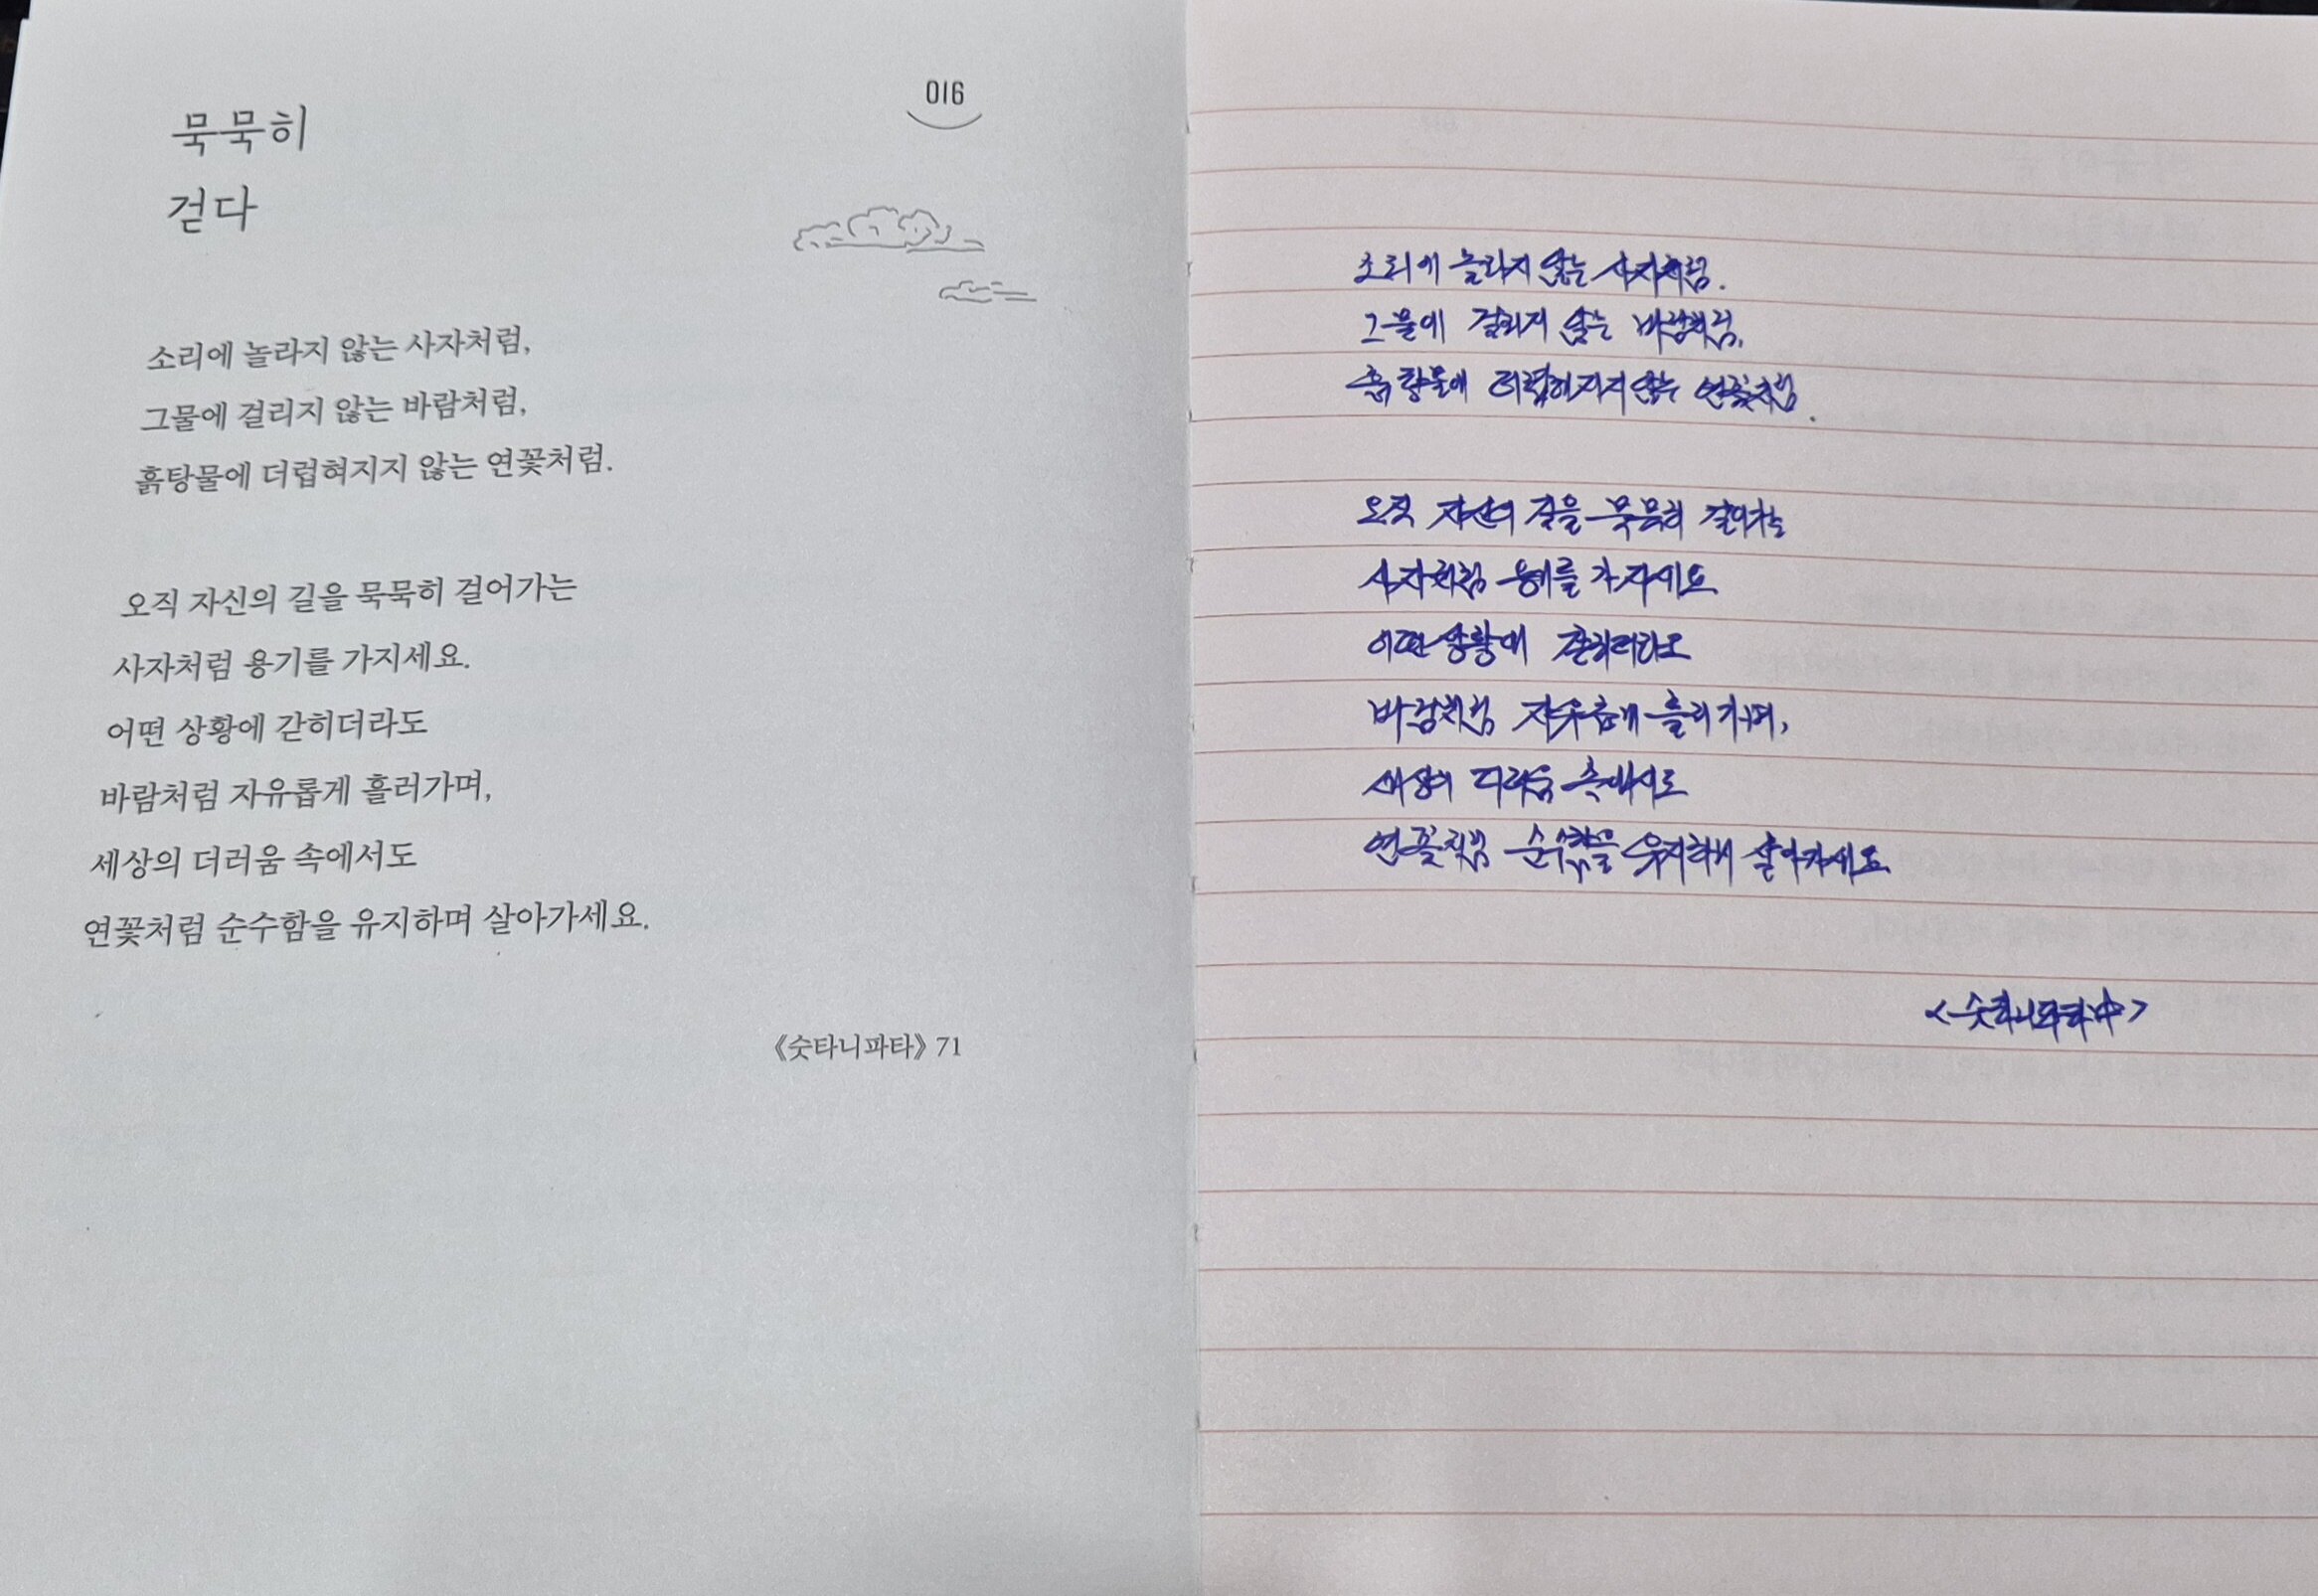 016
묵묵히
걷다
소리에 놀라지 않는 사자처럼,
그물에 걸리지 않는 바람처럼,
흙탕물에 더럽혀지지 않는 연꽃처럼.
오직 자신의 길을 묵묵히 걸어가는
사자처럼 용기를 가지세요.
어떤 상황에 갇히더라도
바람처럼 자유롭게 흘러가며,
세상의 더러움 속에서도
연꽃처럼 순수함을 유지하며 살아가세요.
《숫타니파타》 71
소리에 놀라지 않는 사자처럼.
그물에 걸리지 않는 바람처럼,
흙탕물에 더럽혀지지 않는 연꽃처럼.
오직 자신의 길을 묵묵히 걸어가는
사자처럼 용기를 가지세요
어떤 상황에 갇히더라도
바람처럼 자유롭게 흘러가며,
세상의 더러움 속에서도
연꽃처럼 순수함을 유지하며 살아가세요.
<숫타니파타 中>